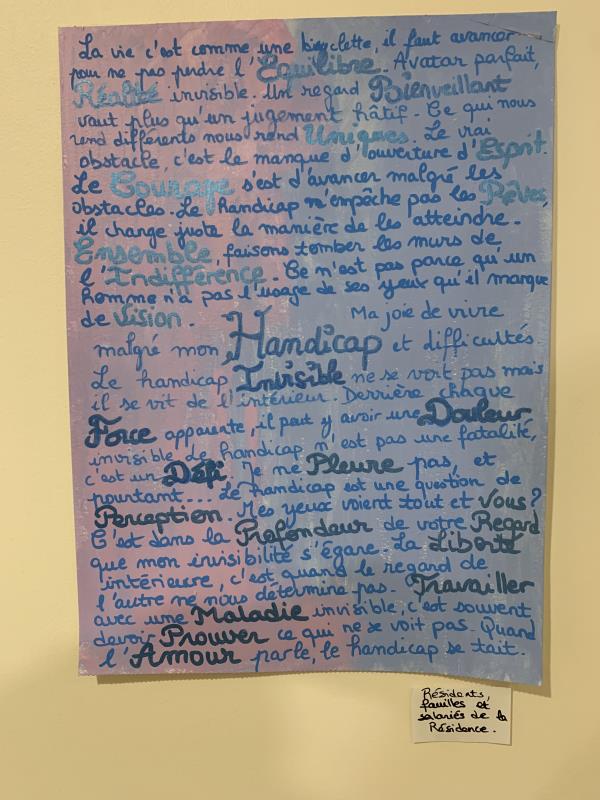 La vie c'est comme une bicyclette, il faut avancer
pour ne pas perdre l'Equilibre. Avatar parfait,
Réalité invisible. Un regard Bienveillant
vaut plus qu'un jugement hâtif. Ce qui nous
rend différents nous rend Uniques. Le vrai
obstacle, c'est le manque d'ouverture d'Esprit.
Le Courage s'est d'avancer malgré les
obstacles. Le handicap n'empêche pas les Rêves,
il change juste la manière de les atteindre.
Ensemble, faisons tomber les murs de
l'Indifférence. Ce n'est pas parce qu'un
homme n'a pas l'usage de ses yeux qu'il manque
de Vision. Ma joie de vivre
malgré mon Handicap et difficultés
Le handicap Invisible ne se voit pas mais
il se vit de l'intérieur. Derrière chaque
Force apparente, il peut y avoir une Douleur
invisible. Le handicap n'est pas une fatalité,
c'est un Défi. Je ne Pleure pas, et
pourtant... Le handicap est une question de
Perception. Mes yeux voient tout et Vous?
C'est dans la Profondeur de votre Regard
que mon invisibilité s'égare. La Liberté
intérieure, c'est quand le regard de
l'autre ne nous détermine pas. Travailler
avec une Maladie invisible, c'est souvent
devoir Prouver ce qui ne se voit pas. Quand
l'Amour parle, le handicap se tait.
Résidents,
familles et
salariés de la
Résidence.